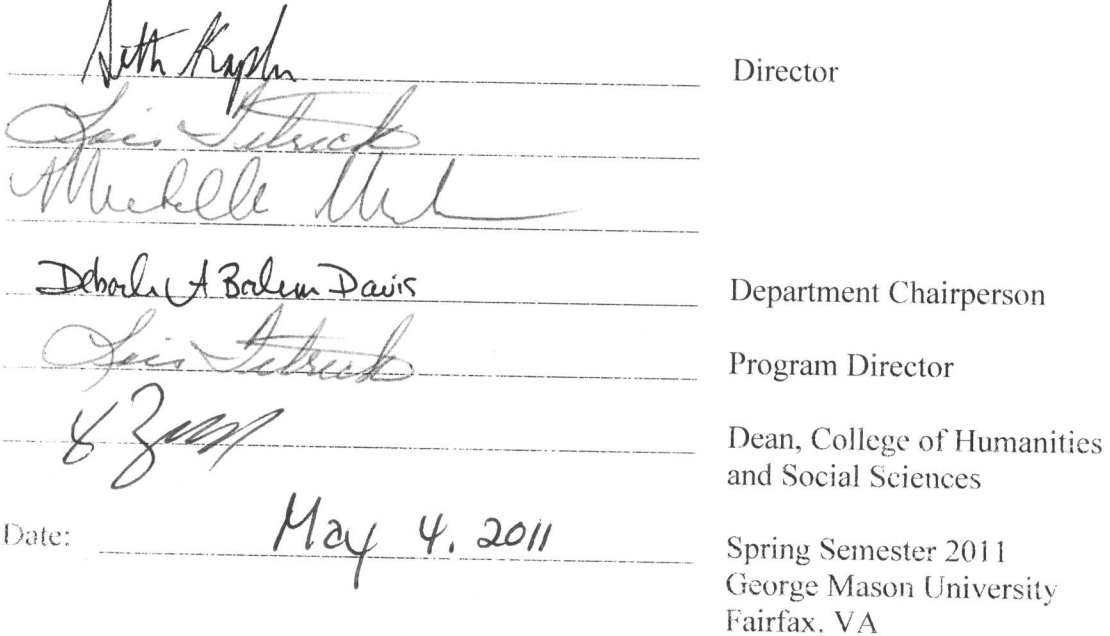 Seth Kaplan Director
Lois Tetrick
Michelle
Deborah A Boehm Davis Department Chairperson
Lois Tetrick Program Director
Dean, College of Humanities
and Social Sciences
Date: May 4, 2011
Spring Semester 2011
George Mason University
Fairfax, VA